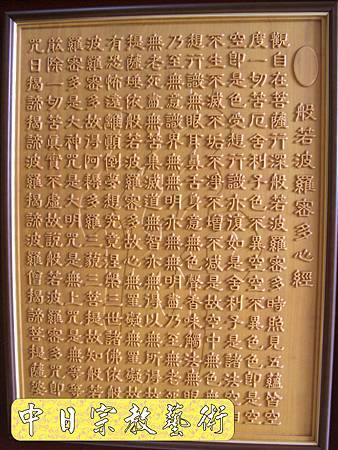 般若波羅密多心經
觀自在菩薩行深般若波羅密多時照見五蘊皆空
度一切苦厄舍利子色不異空空不異色色即是空
空即是色受想行識亦復如是舍利子是諸法空相
不生不滅不垢不淨不增不減是故空中無色無受
想行識無眼耳鼻舌身意無色聲香味觸法無眼界
乃至無意識界無無明亦無無明盡乃至無老死亦
無老死盡無苦集滅道無智亦無得以無所得故菩
提薩埵依般若波羅密多故心無罣礙無罣礙故無
有恐怖遠離顛倒夢想究竟涅槃三世諸佛依般若
波羅密多故得阿耨多羅三藐三菩提故知般若波
羅密多是大神咒是大明咒是無上咒是無等等咒
能除一切苦真實不虛故說般若波羅密多咒即說
咒曰揭諦揭諦波羅揭諦波羅僧揭諦菩提薩婆訶
中日宗教藝術